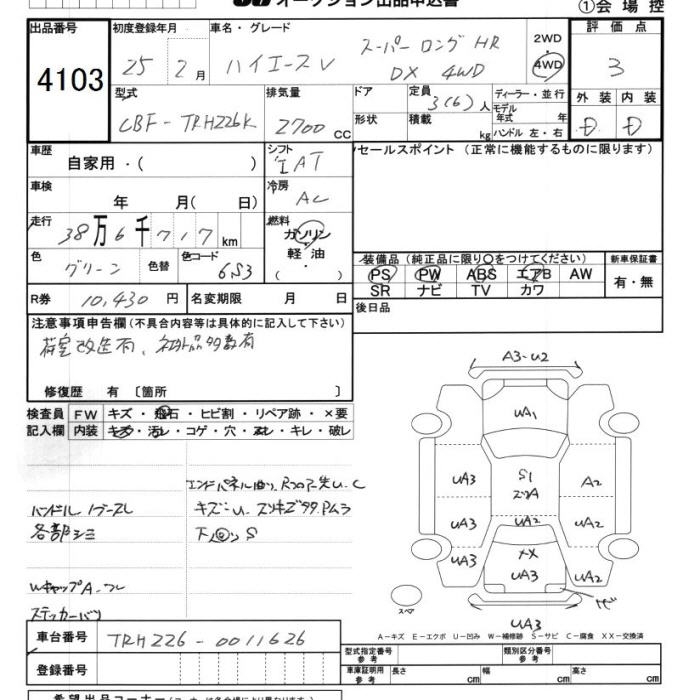 オークション出品申込書
①会場控
出品番号
4103
初度登録年月
25 2月
車名・グレード
ハイエースV スーパーロング HR
DX 4WD
2WD
4WD
評価点
3
型式
CBF-TRH226K
排気量
2700 CC
ドア
形状
定員
3(6)人
積載
kg
ディーラー・並行
モデル
年式 年
ハンドル 左・右
外装 内装
D D
車歴
自家用・( )
シフト
IAT
セールスポイント (正常に機能するものに限ります)
車検
年 月( 日)
冷房
AC
走行
38万6千717km
燃料
ガソリン
軽油
・( )
色
グリーン
色替
色コード
6S3
装備品 (純正品に限り○をつけてください)
新車保証書
PS PW ABS エアB AW
SR ナビ TV カワ
有・無
R券
10,430円
名変期限 月 日
後日品
注意事項申告欄(不具合内容等は具体的に記入して下さい)
荷室改造有、社外品多数有
修復歴 有 〔箇所 〕
検査員
記入欄
FW キズ・飛石・ヒビ割・リペア跡・×要
内装 キズ・汚レ・コゲ・穴・ヌレ・キレ・破レ
キズ
各部シミ
S
WキャップA
A3-U2
UA1
UA3
S1
A2
UA3
UA2
UA2
UA3
XX
UA3
UA2
スペア
UA3
A-キズ E-エクボ U-凹み W-補修跡 S-サビ C-腐食 XX-交換済
車台番号
TRH226-0011626
登録番号
型式指定番号
参考
類別区分番号
参考
車庫証明用
参考
長さ cm 幅 cm 高さ cm
希望出品コーナー